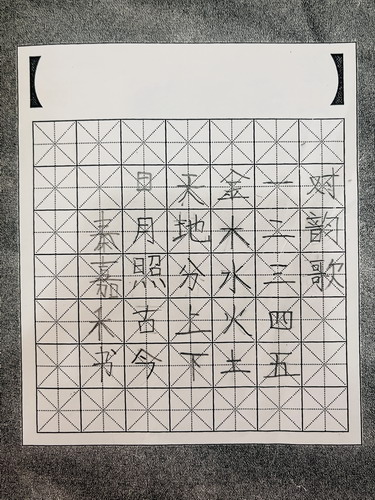 对韵歌
一二三四五
金木水火土
天地分上下
日月照古今
嘉禾书